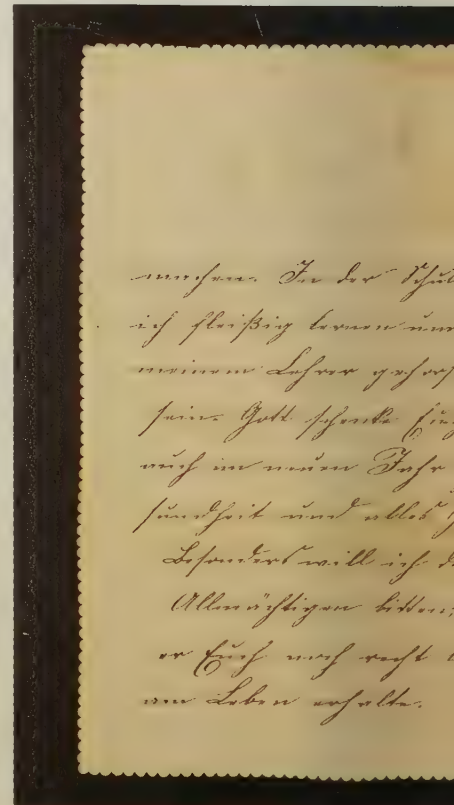 machen. In der Schul
ich fleißig lernen und
meinem Lehrer gehors
sein. Gott schenke Euch
auch im neuen Jahr
sundheit und alles
Besonders will ich d
Allmächtigen bitten,
er Euch noch recht
am Leben erhalte.